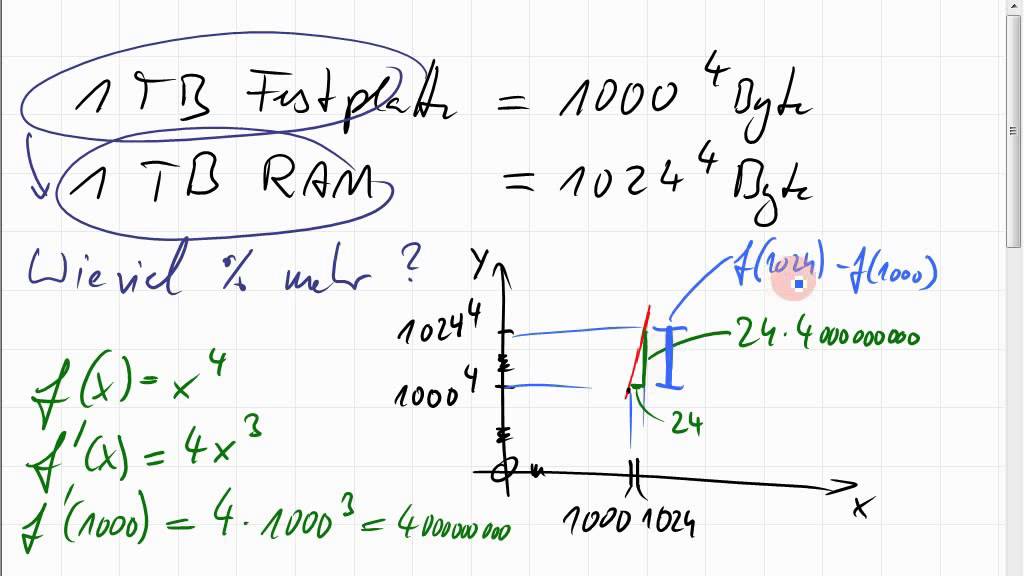 1 TB Festplatte = 1000⁴ Byte
1 TB RAM = 1024⁴ Byte
Wieviel % mehr ?
f(x) = x⁴
f'(x) = 4x³
f'(1000) = 4 · 1000³ = 4000000000
y
f(1024) - f(1000)
1024⁴
24 · 4000000000
1000⁴
24
0
x
1000 1024